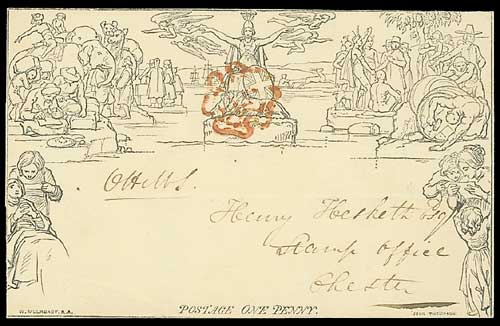 Henry Hesketh Esq
Stamp Office
Chester
POSTAGE ONE PENNY.
W. MULREADY, R.A.
JOHN THOMPSON